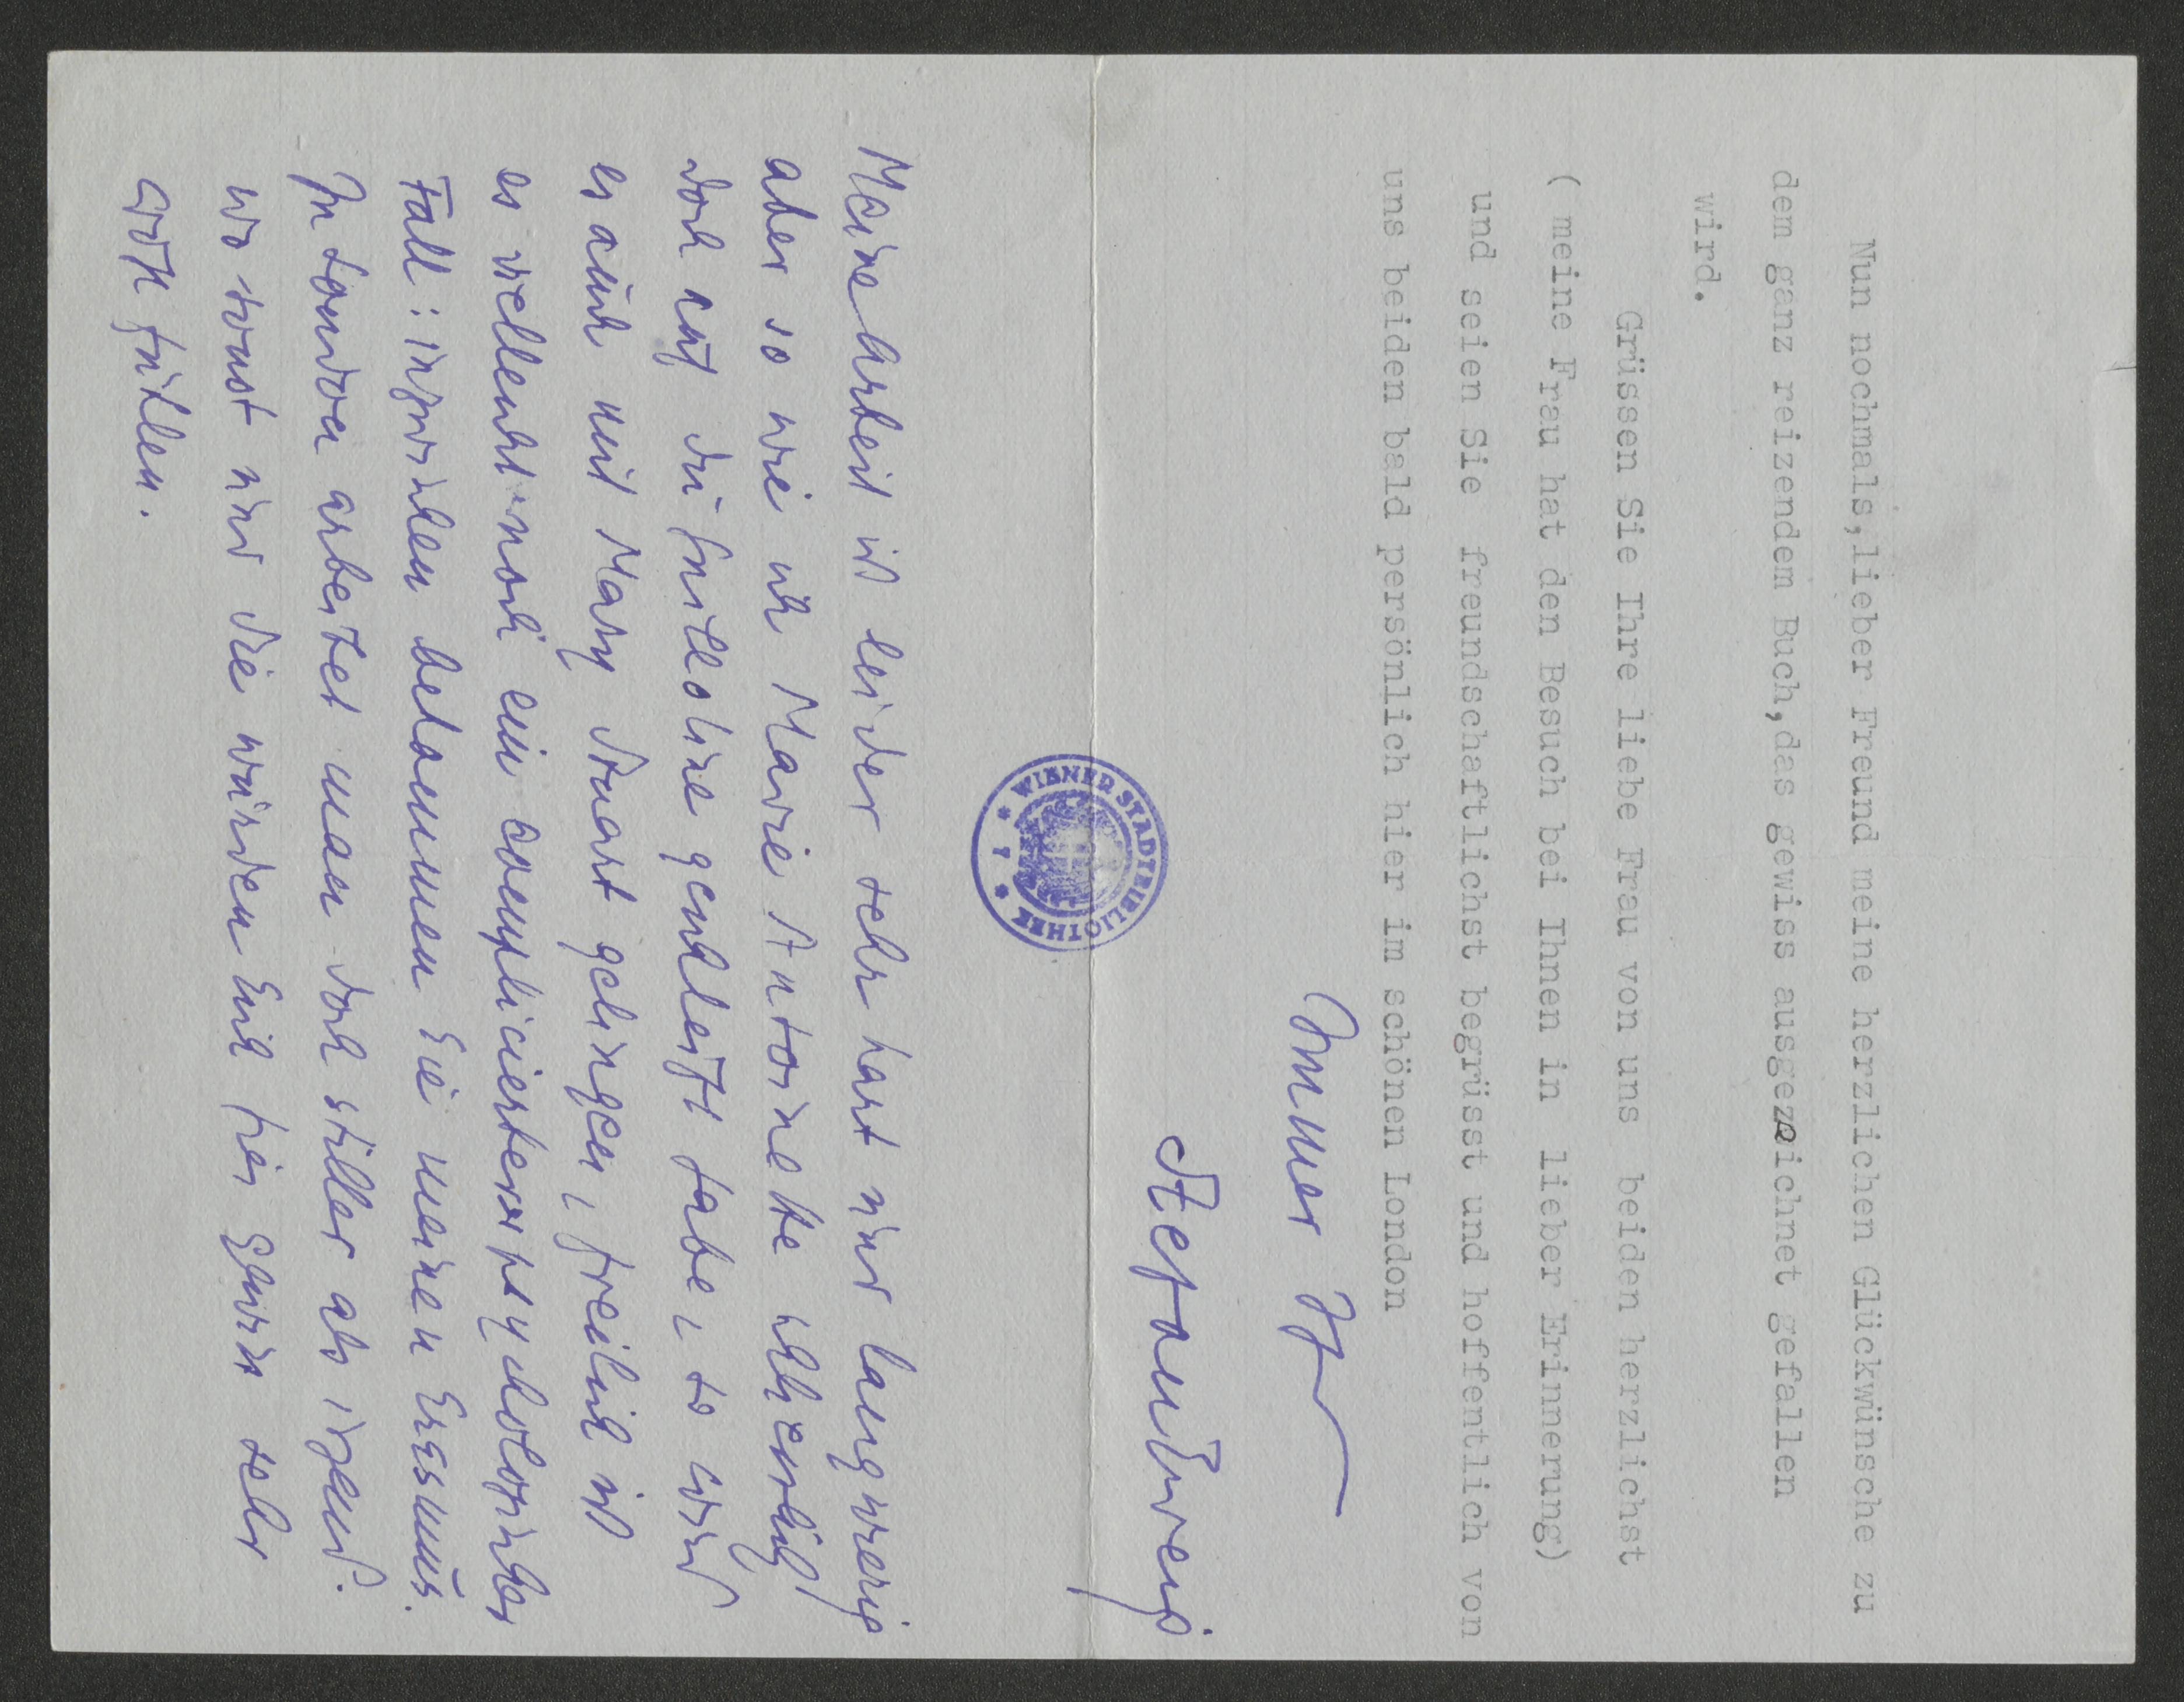 Nun nochmals,lieber Freund meine herzlichen Glückwünsche zu
dem ganz reizendem Buch,das gewiss ausgezeichnet gefallen
wird.
Grüssen Sie Ihre liebe Frau von uns beiden herzlichst
( meine Frau hat den Besuch bei Ihnen in lieber Erinnerung)
und seien Sie freundschaftlichst begrüsst und hoffentlich von
uns beiden bald persönlich hier im schönen London
Immer Ihr
Stefan Zweig
WIENER STADTBIBLIOTHEK
Meine Arbeit ist leider sehr hart und langwierig
aber so wie ich Marie Antoinette
doch auf die Guillotine geschleift habe, so wird
es auch mit Mary Stuart gelingen, freilich ist
es vielleicht noch ein complicierterer psychologischer
Fall: inzwischen bekommen Sie meinen Erasmus.
In London arbeitet man doch stiller als irgend.
wo sonst und Sie würden sich hier gewiss sehr
wohl fühlen.